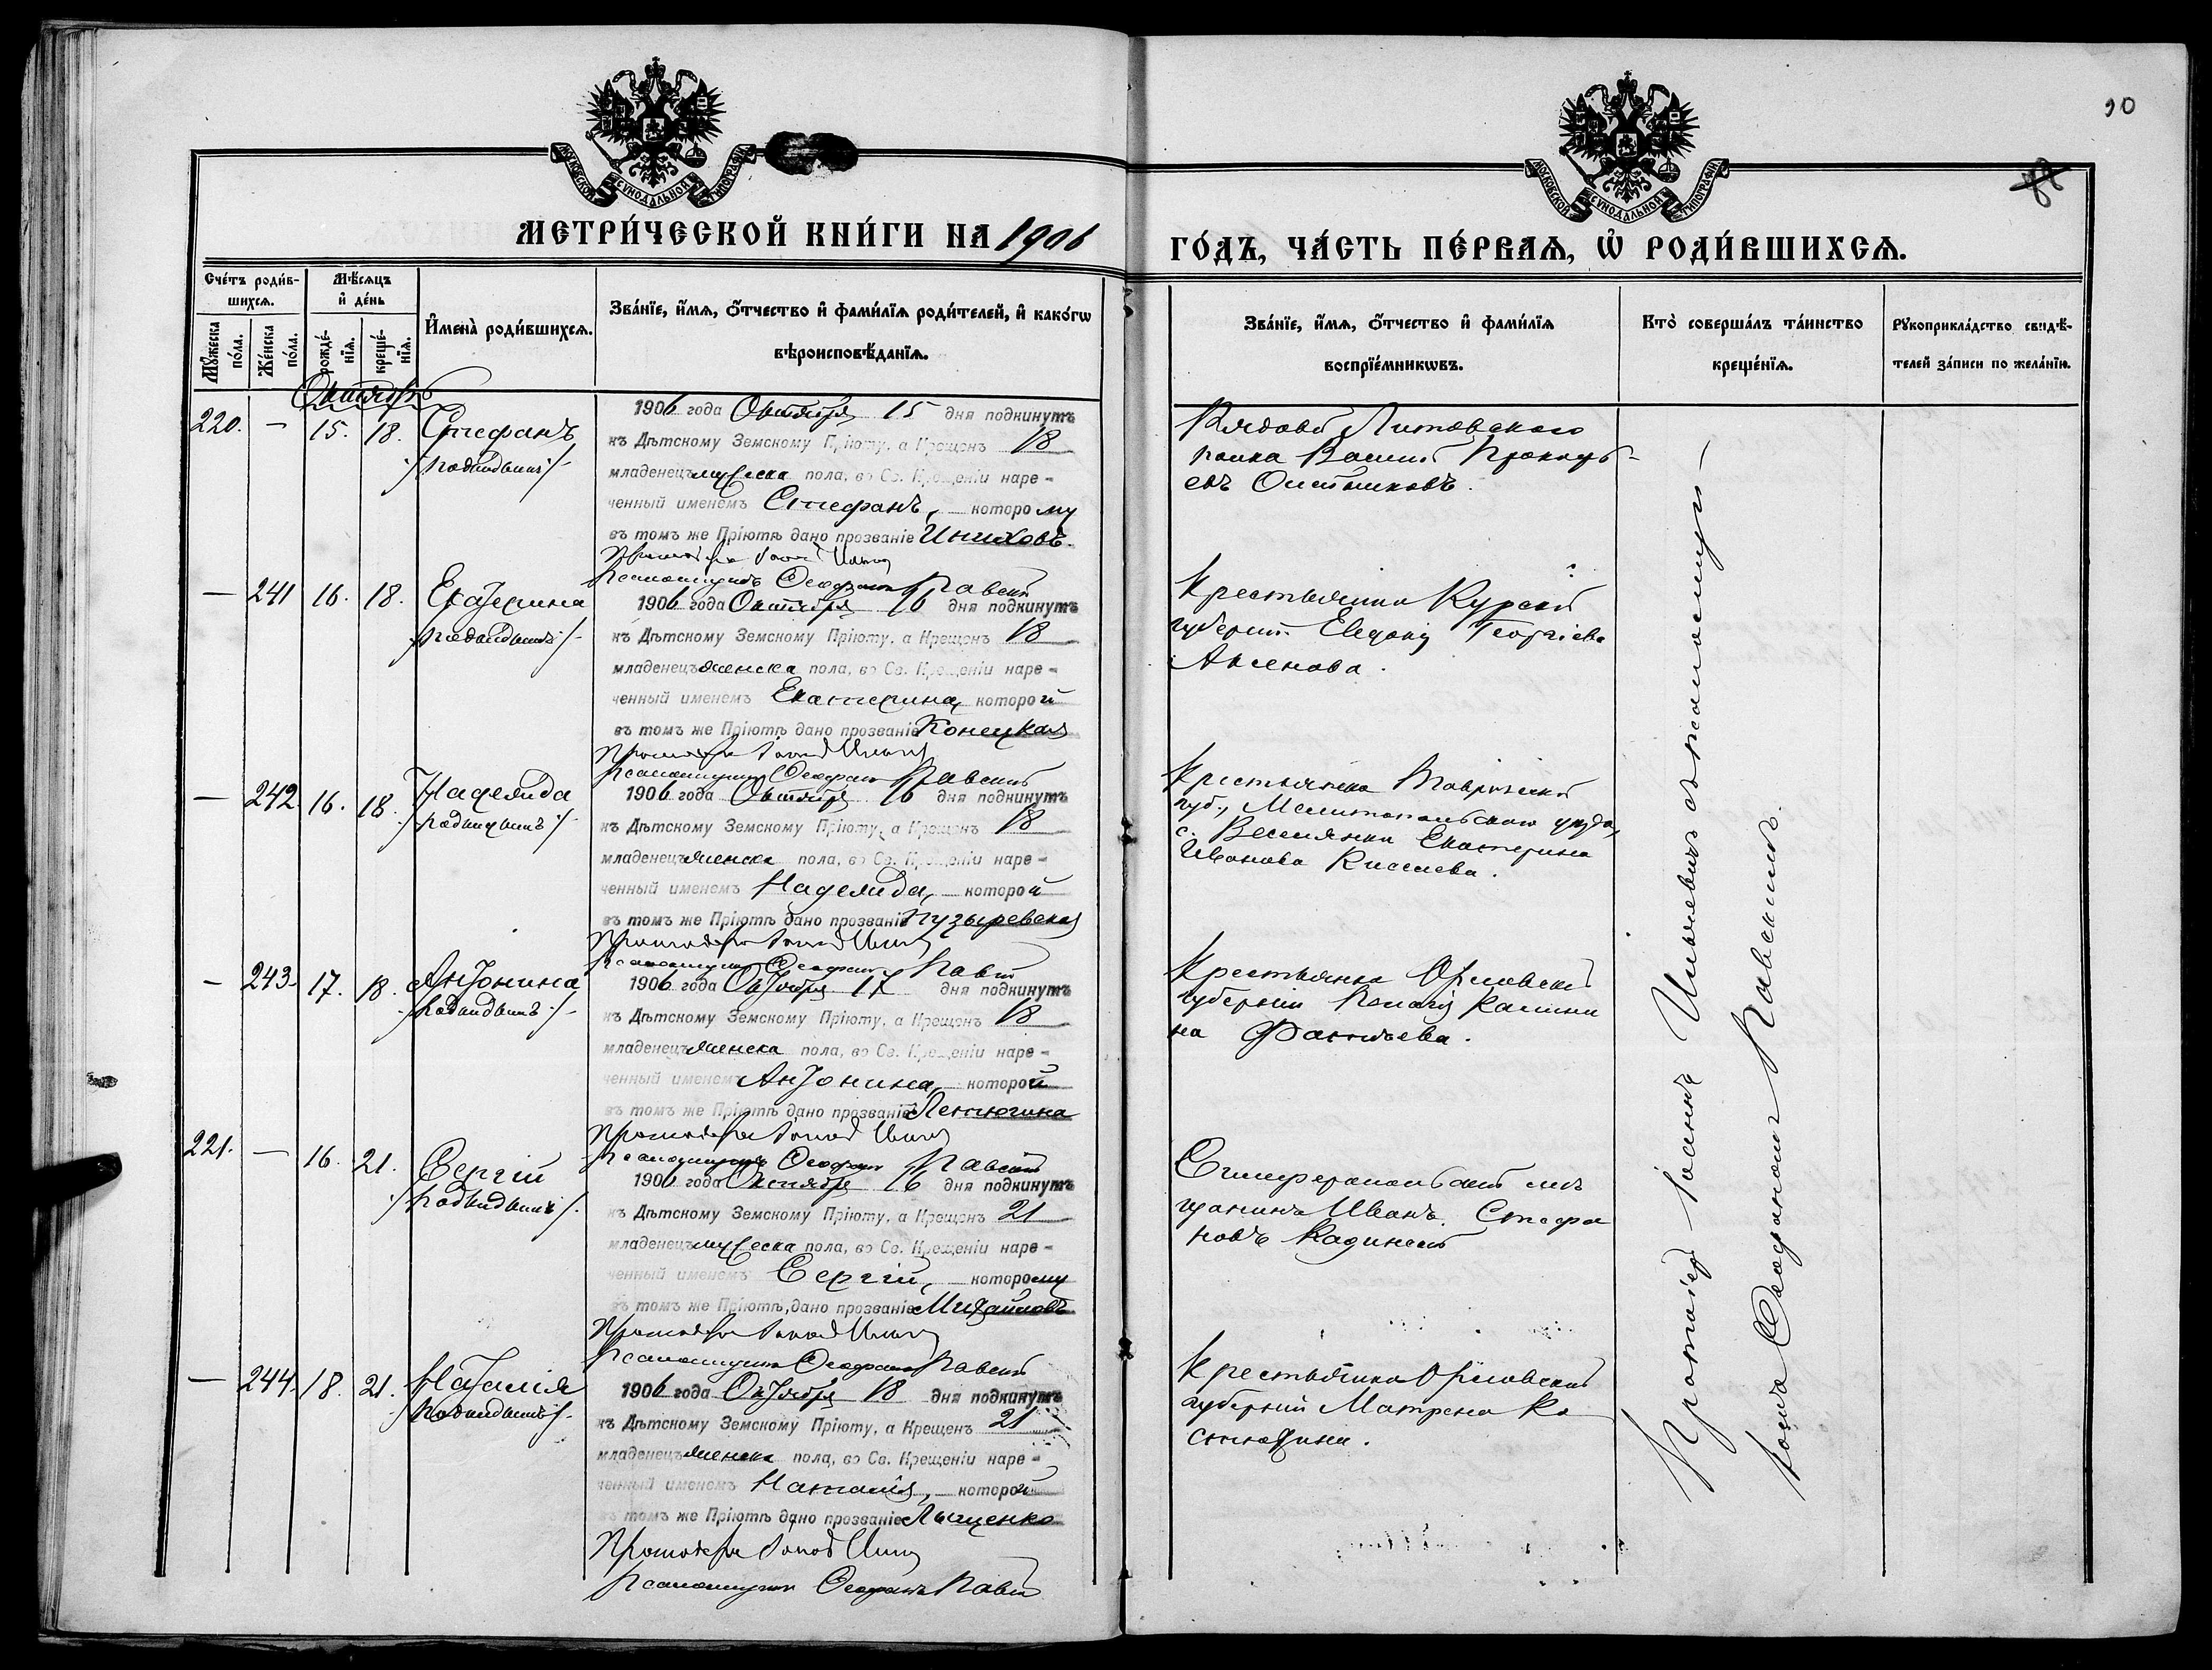 90
МОСКОВСКОЙ СѴНОДАЛЬНОЙ ТИПОГРАФІИ
МОСКОВСКОЙ СѴНОДАЛЬНОЙ ТИПОГРАФІИ
МЕТРИ́ЧЕСКОЙ КНИ́ГИ НА 1906
ГО́ДЪ, ЧА́СТЬ ПЕ́РВАѦ, Ѡ҆ РОДИ́ВШИХСѦ.
Сче́тъ роди́в-
шихсѧ.
Мꙋ́жеска
по́ла.
Же́нска
по́ла.
Мѣ́сѧцъ
и҆ де́нь
рожде́-
нїѧ.
креще́-
нїѧ.
И҆мена̀ роди́вшихсѧ.
Зва́нїе, и҆́мѧ, ѻ҆́тчество и҆ фами́лїѧ роди́телей, и҆ како́гѡ
вѣроисповѣ́данїѧ.
Зва́нїе, и҆́мѧ, ѻ҆́тчество и҆ фами́лїѧ
воспрїе́мникѡвъ.
Кто̀ соверша́лъ та́инство
креще́нїѧ.
Рꙋкоприкла́дство свидѣ́-
телей за́писи по жела́нїю.
Октябрь
220. — 15. 18. Стефанъ
/подкидышъ/
1906 года Октября 15 дня подкинутъ
къ Дѣтскому Земскому Пріюту, а Крещенъ 18
младенецъ мужеска пола, во Св. Крещеніи наре-
ченный именемъ Стефанъ, которому
въ томъ же Пріютѣ дано прозваніе
Протоіерей
Псаломщикъ Феофанъ Павскій
Рядовой Литовскаго
полка
— 241 16. 18. Екатерина
/подкидышъ/
1906 года Октября 16 дня подкинутъ
къ Дѣтскому Земскому Пріюту, а Крещенъ 18
младенецъ женска пола, во Св. Крещеніи наре-
ченный именемъ Екатерина, которой
въ томъ же Пріютѣ дано прозваніе Конецкая
Протоіерей
Псаломщикъ Феофанъ Павскій
Крестьянка Курской
губерніи Евдокія Георгіева
Аксенова.
— 242 16. 18. Надежда
/подкидышъ/
1906 года Октября 16 дня подкинутъ
къ Дѣтскому Земскому Пріюту, а Крещенъ 18
младенецъ женска пола, во Св. Крещеніи наре-
ченный именемъ Надежда, которой
въ томъ же Пріютѣ дано прозваніе Пузыревская
Протоіерей
Псаломщикъ Феофанъ Павскій
Крестьянка Таврической
губ., Мелитопольскаго уѣзда,
с. Веселянки Екатерина
Иванова Киселева.
— 243 17. 18. Антонина
/подкидышъ/
1906 года Октября 17 дня подкинутъ
къ Дѣтскому Земскому Пріюту, а Крещенъ 18
младенецъ женска пола, во Св. Крещеніи наре-
ченный именемъ Антонина, которой
въ томъ же Пріютѣ дано прозваніе
Протоіерей
Псаломщикъ Феофанъ Павскій
Крестьянка Орловской
губерніи
221. — 16. 21. Сергій
/подкидышъ/
1906 года Октября 16 дня подкинутъ
къ Дѣтскому Земскому Пріюту, а Крещенъ 21
младенецъ мужеска пола, во Св. Крещеніи наре-
ченный именемъ Сергій, которому
въ томъ же Пріютѣ, дано прозваніе Михайловъ
Протоіерей
Псаломщикъ Феофанъ Павскій
Симферопольскій мѣ
щанинъ Иванъ Стефа
новъ
— 244 18. 21. Наталія
/подкидышъ/
1906 года Октября 18 дня подкинутъ
къ Дѣтскому Земскому Пріюту, а Крещенъ 21
младенецъ женска пола, во Св. Крещеніи наре-
ченный именемъ Наталія, которой
въ томъ же Пріютѣ дано прозваніе Лященко
Протоіерей
Псаломщикъ Феофанъ Павскій
Крестьянка Орловской
губерніи Матрена Ко
Протоіерей Іоаннъ съ псаломщи-
комъ Феофаномъ Павскимъ.